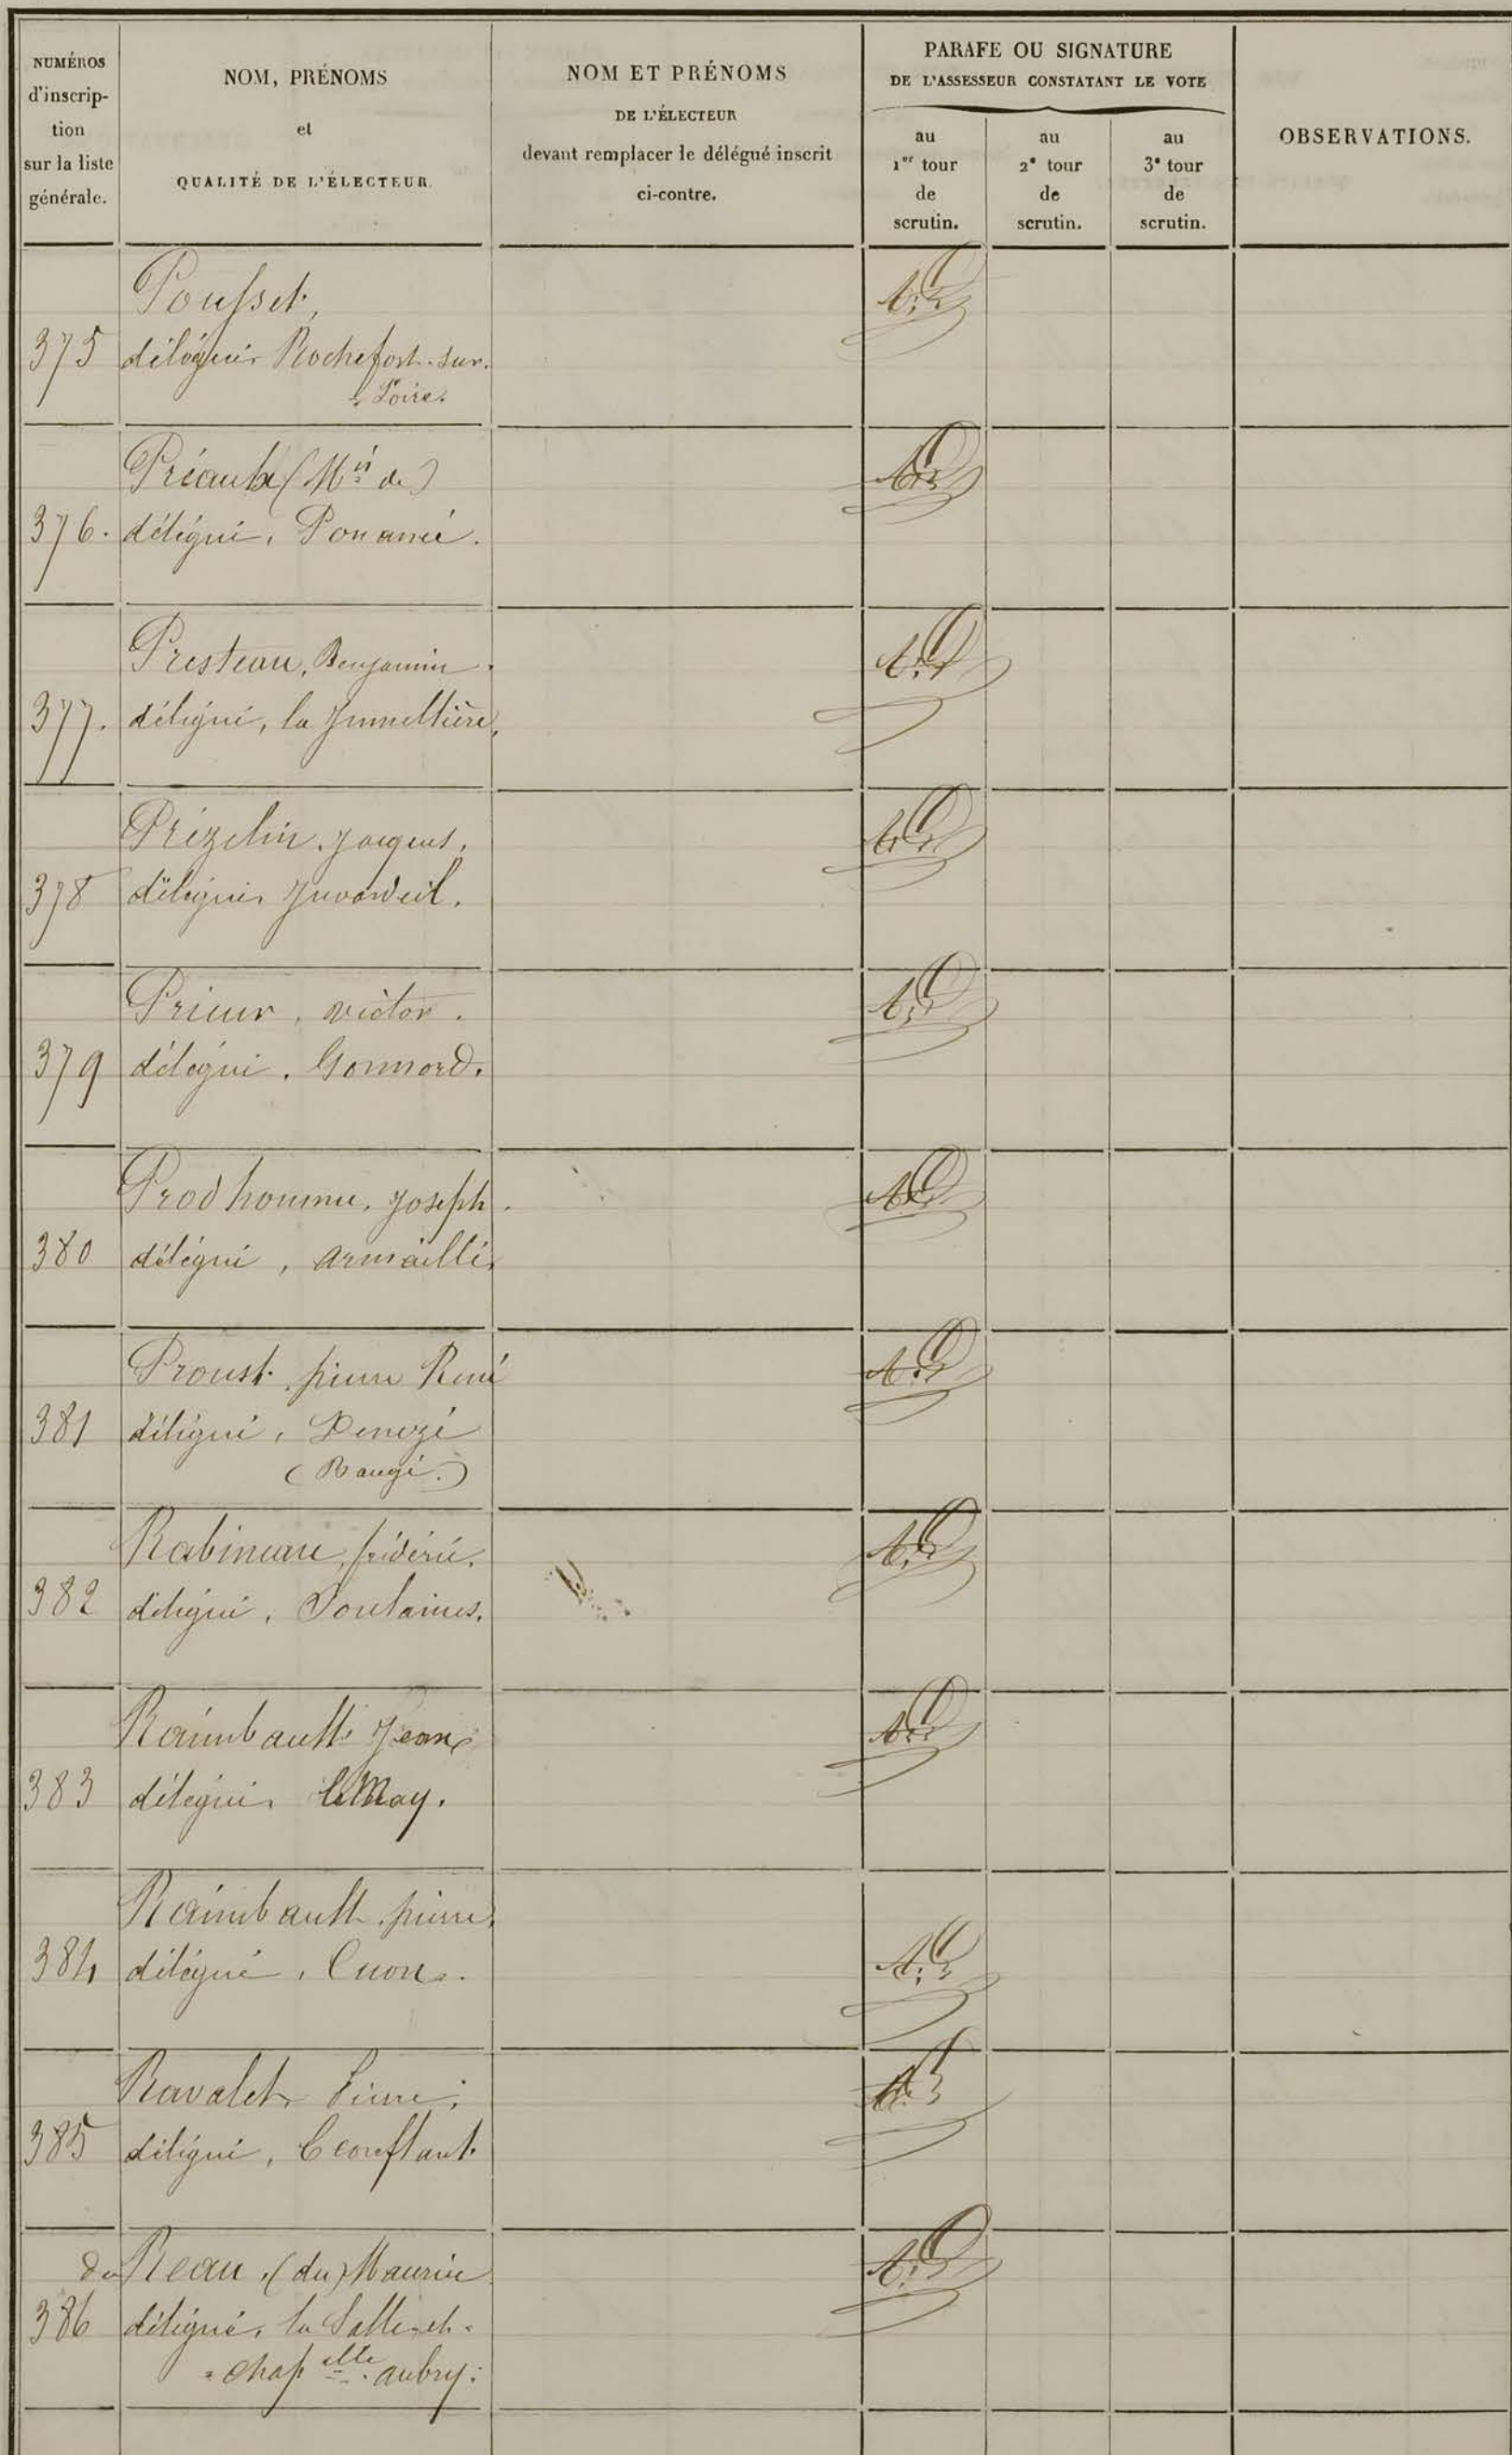 NUMÉROS
d'inscrip-
tion
sur la liste
générale.
NOM, PRÉNOMS
et
QUALITÉ DE L'ÉLECTEUR.
NOM ET PRÉNOMS
DE L'ÉLECTEUR
devant remplacer le délégué inscrit
ci-contre.
PARAFE OU SIGNATURE
DE L'ASSESSEUR CONSTATANT LE VOTE
au
1er tour
de
scrutin.
au
2e tour
de
scrutin.
au
3e tour
de
scrutin.
OBSERVATIONS.
Pousset,
375 délégué, Rochefort-sur-
Loire.
Préaulx (Mis de)
376. délégué, Pouancé.
Presteau, Benjamin.
377. délégué, la Jumellière,
Prézelin, Jacques,
378 délégué, Juvardeil.
Prieur, victor.
379 délégué. Gonnord.
Prodhomme, Joseph.
380 délégué, armaillé,
Proust, pierre René
381 délégué, Denezé
(Baugé.)
Rabineau, frédéric.
382 délégué, Soulaines.
Raimbault Jean
383 délégué, le May.
Raimbault, pierre,
384 délégué, Cuon.
Ravalet, Pierre,
385 délégué, Contestant
du Reau, (du) Maurice
386 délégué, la Salle-et-
-chapelle aubry.